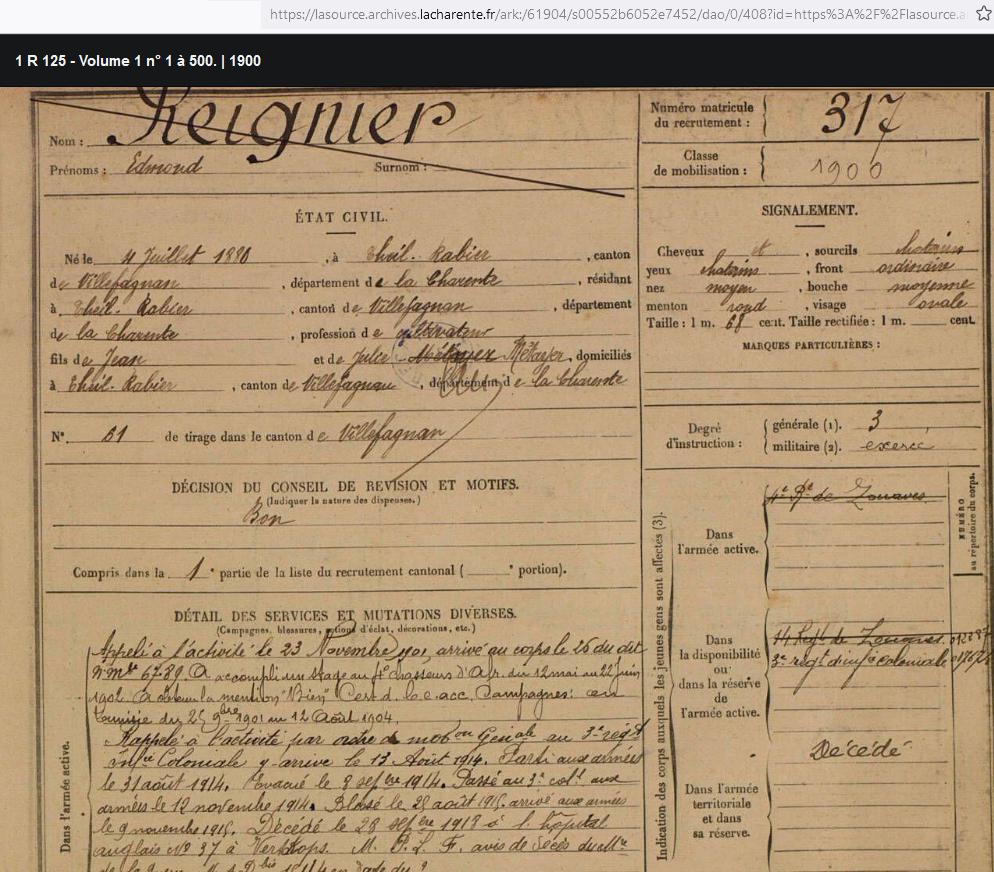 https://lasource.archives.lacharente.fr/ark:/61904/s00552b6052e7452/dao/0/408?id=https%3A%2F%2Flasource.a
1 R 125 - Volume 1 n° 1 à 500. | 1900
Nom : Reignier
Prénoms : Edmond Surnom :
Numéro matricule du recrutement : 317
Classe de mobilisation : 1900
ÉTAT CIVIL.
Né le 4 Juillet 1880, à Theil-Rabier, canton
de Villefagnan, département de la Charente, résidant
à Theil-Rabier, canton de Villefagnan, département
de la Charente, profession de cultivateur
fils de Jean et de Julie Métayer, domiciliés
à Theil-Rabier, canton de Villefagnan, département de la Charente
N° 51 de tirage dans le canton de Villefagnan
SIGNALEMENT.
Cheveux et, sourcils chatains
yeux chatains, front ordinaire
nez moyen, bouche moyenne
menton rond, visage ovale
Taille : 1 m. 68 cent. Taille rectifiée : 1 m. cent.
MARQUES PARTICULIÈRES :
Degré d'instruction : générale (1). 3
militaire (2). exercé
DÉCISION DU CONSEIL DE REVISION ET MOTIFS.
(Indiquer la nature des dispenses.)
Bon
Compris dans la 1e partie de la liste du recrutement cantonal ( e portion).
DÉTAIL DES SERVICES ET MUTATIONS DIVERSES.
(Campagnes, blessures, actions d'éclat, décorations, etc.)
Dans l'armée active.
Appelé à l'activité le 23 Novembre 1901, arrivé au corps le 26 du dit
n° mle 6789. A accompli un stage au 4e chasseurs d'Afr. du 12 mai au 22 juin
1902. A obtenu la mention "Bien" Campagnes : en
Tunisie du 25 9bre 1901 au 12 Août 1904.
Rappelé à l'activité par ordre de mobon Génale au 3e régt
infie Coloniale y arrive le 13 Août 1914. Parti aux armées
le 31 août 1914. Evacué le 8 sepbre 1914. Passé au 3e colal aux
armées le 12 novembre 1914. Blessé le 25 août 1915. arrivé aux armées
le 9 novembre 1915. Décédé le 28 sepbre 1918 à l'hôpital
anglais No 37 à M. P. L. F. avis de décès du Mtre
Indication des corps auxquels les jeunes gens sont affectés (3).
NUMÉRO au répertoire du corps.
Dans l'armée active.
4e Rgt de Zouaves
Dans la disponibilité ou dans la réserve de l'armée active.
Regt de Zouaves
3e régt d'infie coloniale
Dans l'armée territoriale et dans sa réserve.
Décédé